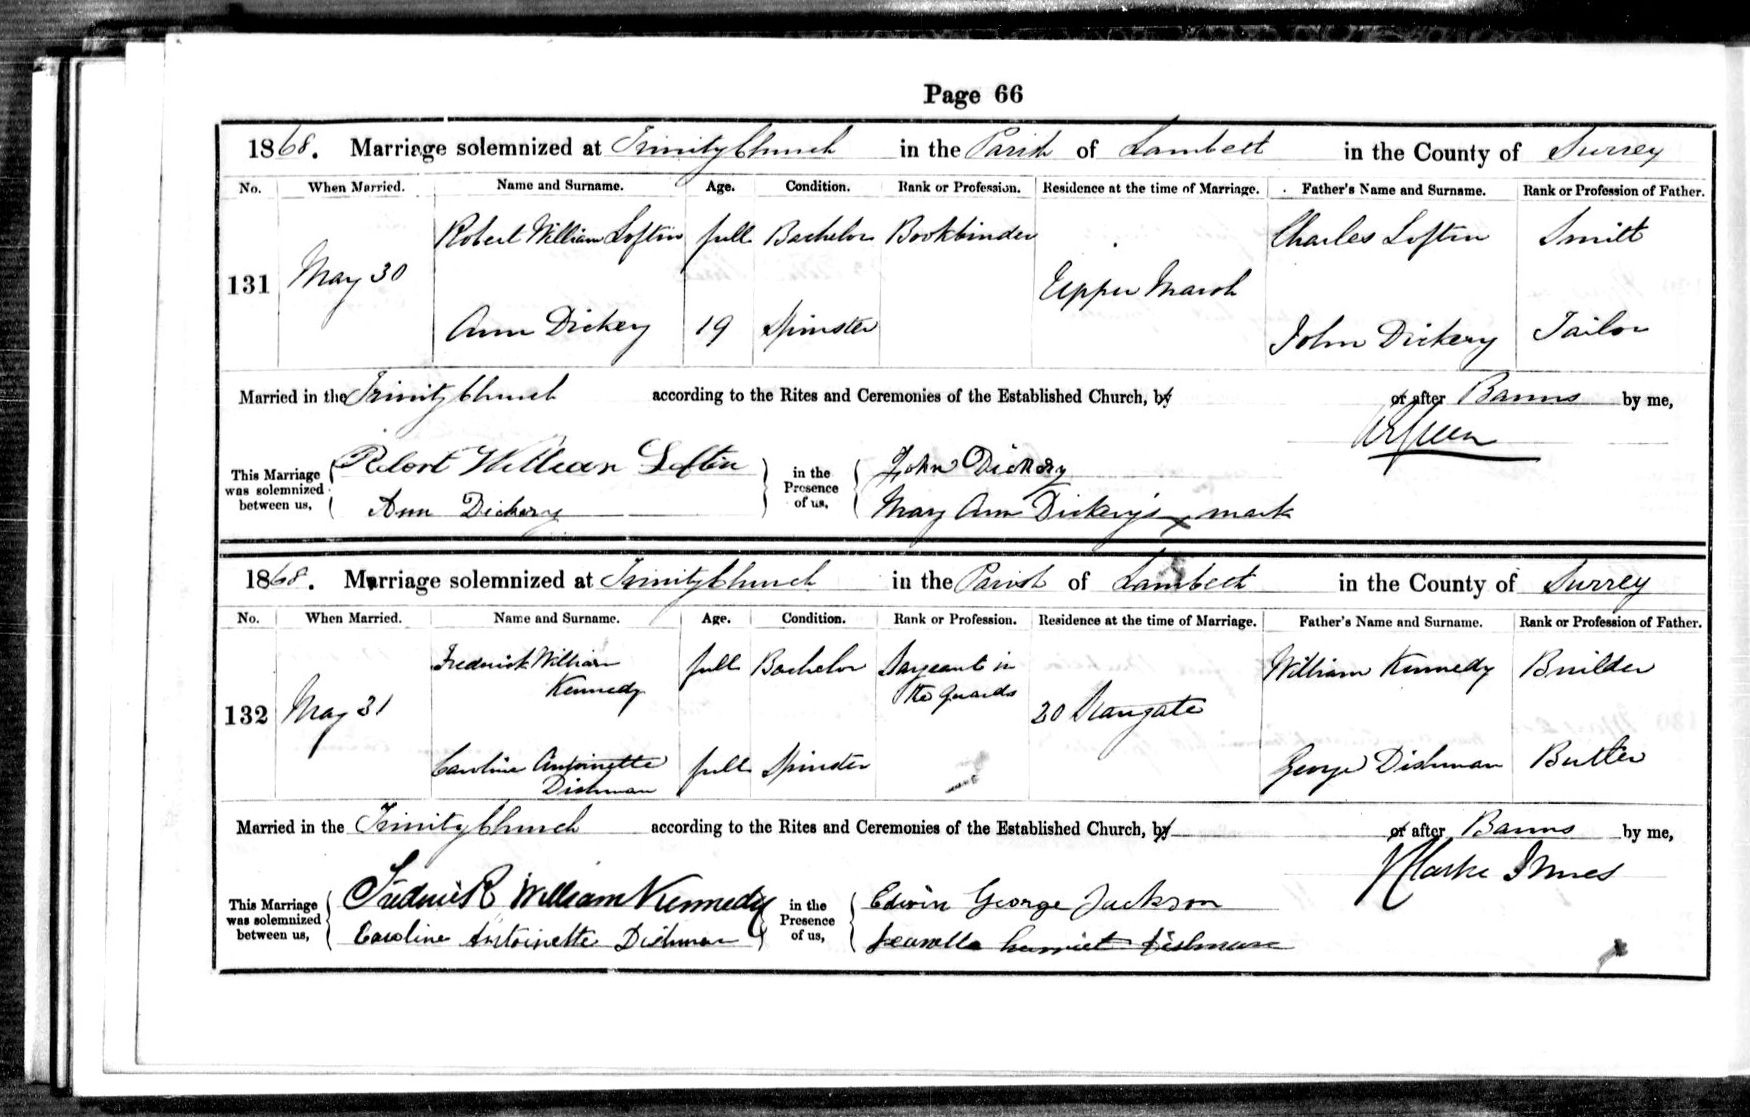 Page 66
1868. Marriage solemnized at Trinity Church in the Parish of Lambeth in the County of Surrey
No. When Married. Name and Surname. Age. Condition. Rank or Profession. Residence at the time of Marriage. Father's Name and Surname. Rank or Profession of Father.
Robert William Loftin full Bachelor Bookbinder Charles Loftin Smith
131 May 30 Upper Marsh
Ann Dickery 19 Spinster John Dickery Tailor
Married in the Trinity Church according to the Rites and Ceremonies of the Established Church, by or after Banns by me,
This Marriage was solemnized between us, Robert William Loftin in the Presence of us, John Dickery
Ann Dickery Mary Ann Dickery's x mark
1868. Marriage solemnized at Trinity Church in the Parish of Lambeth in the County of Surrey
No. When Married. Name and Surname. Age. Condition. Rank or Profession. Residence at the time of Marriage. Father's Name and Surname. Rank or Profession of Father.
Frederick William full Bachelor Sargeant in William Kennedy Builder
Kennedy the Guards
132 May 31 20 Stangate
Caroline Antoinette full Spinster George Dishman Butler
Dishman
Married in the Trinity Church according to the Rites and Ceremonies of the Established Church, by or after Banns by me,
Clarke Innes
This Marriage was solemnized between us, Frederick William Kennedy in the Presence of us, Edwin George Jackson
Caroline Antoinette Dishman harriet dishman